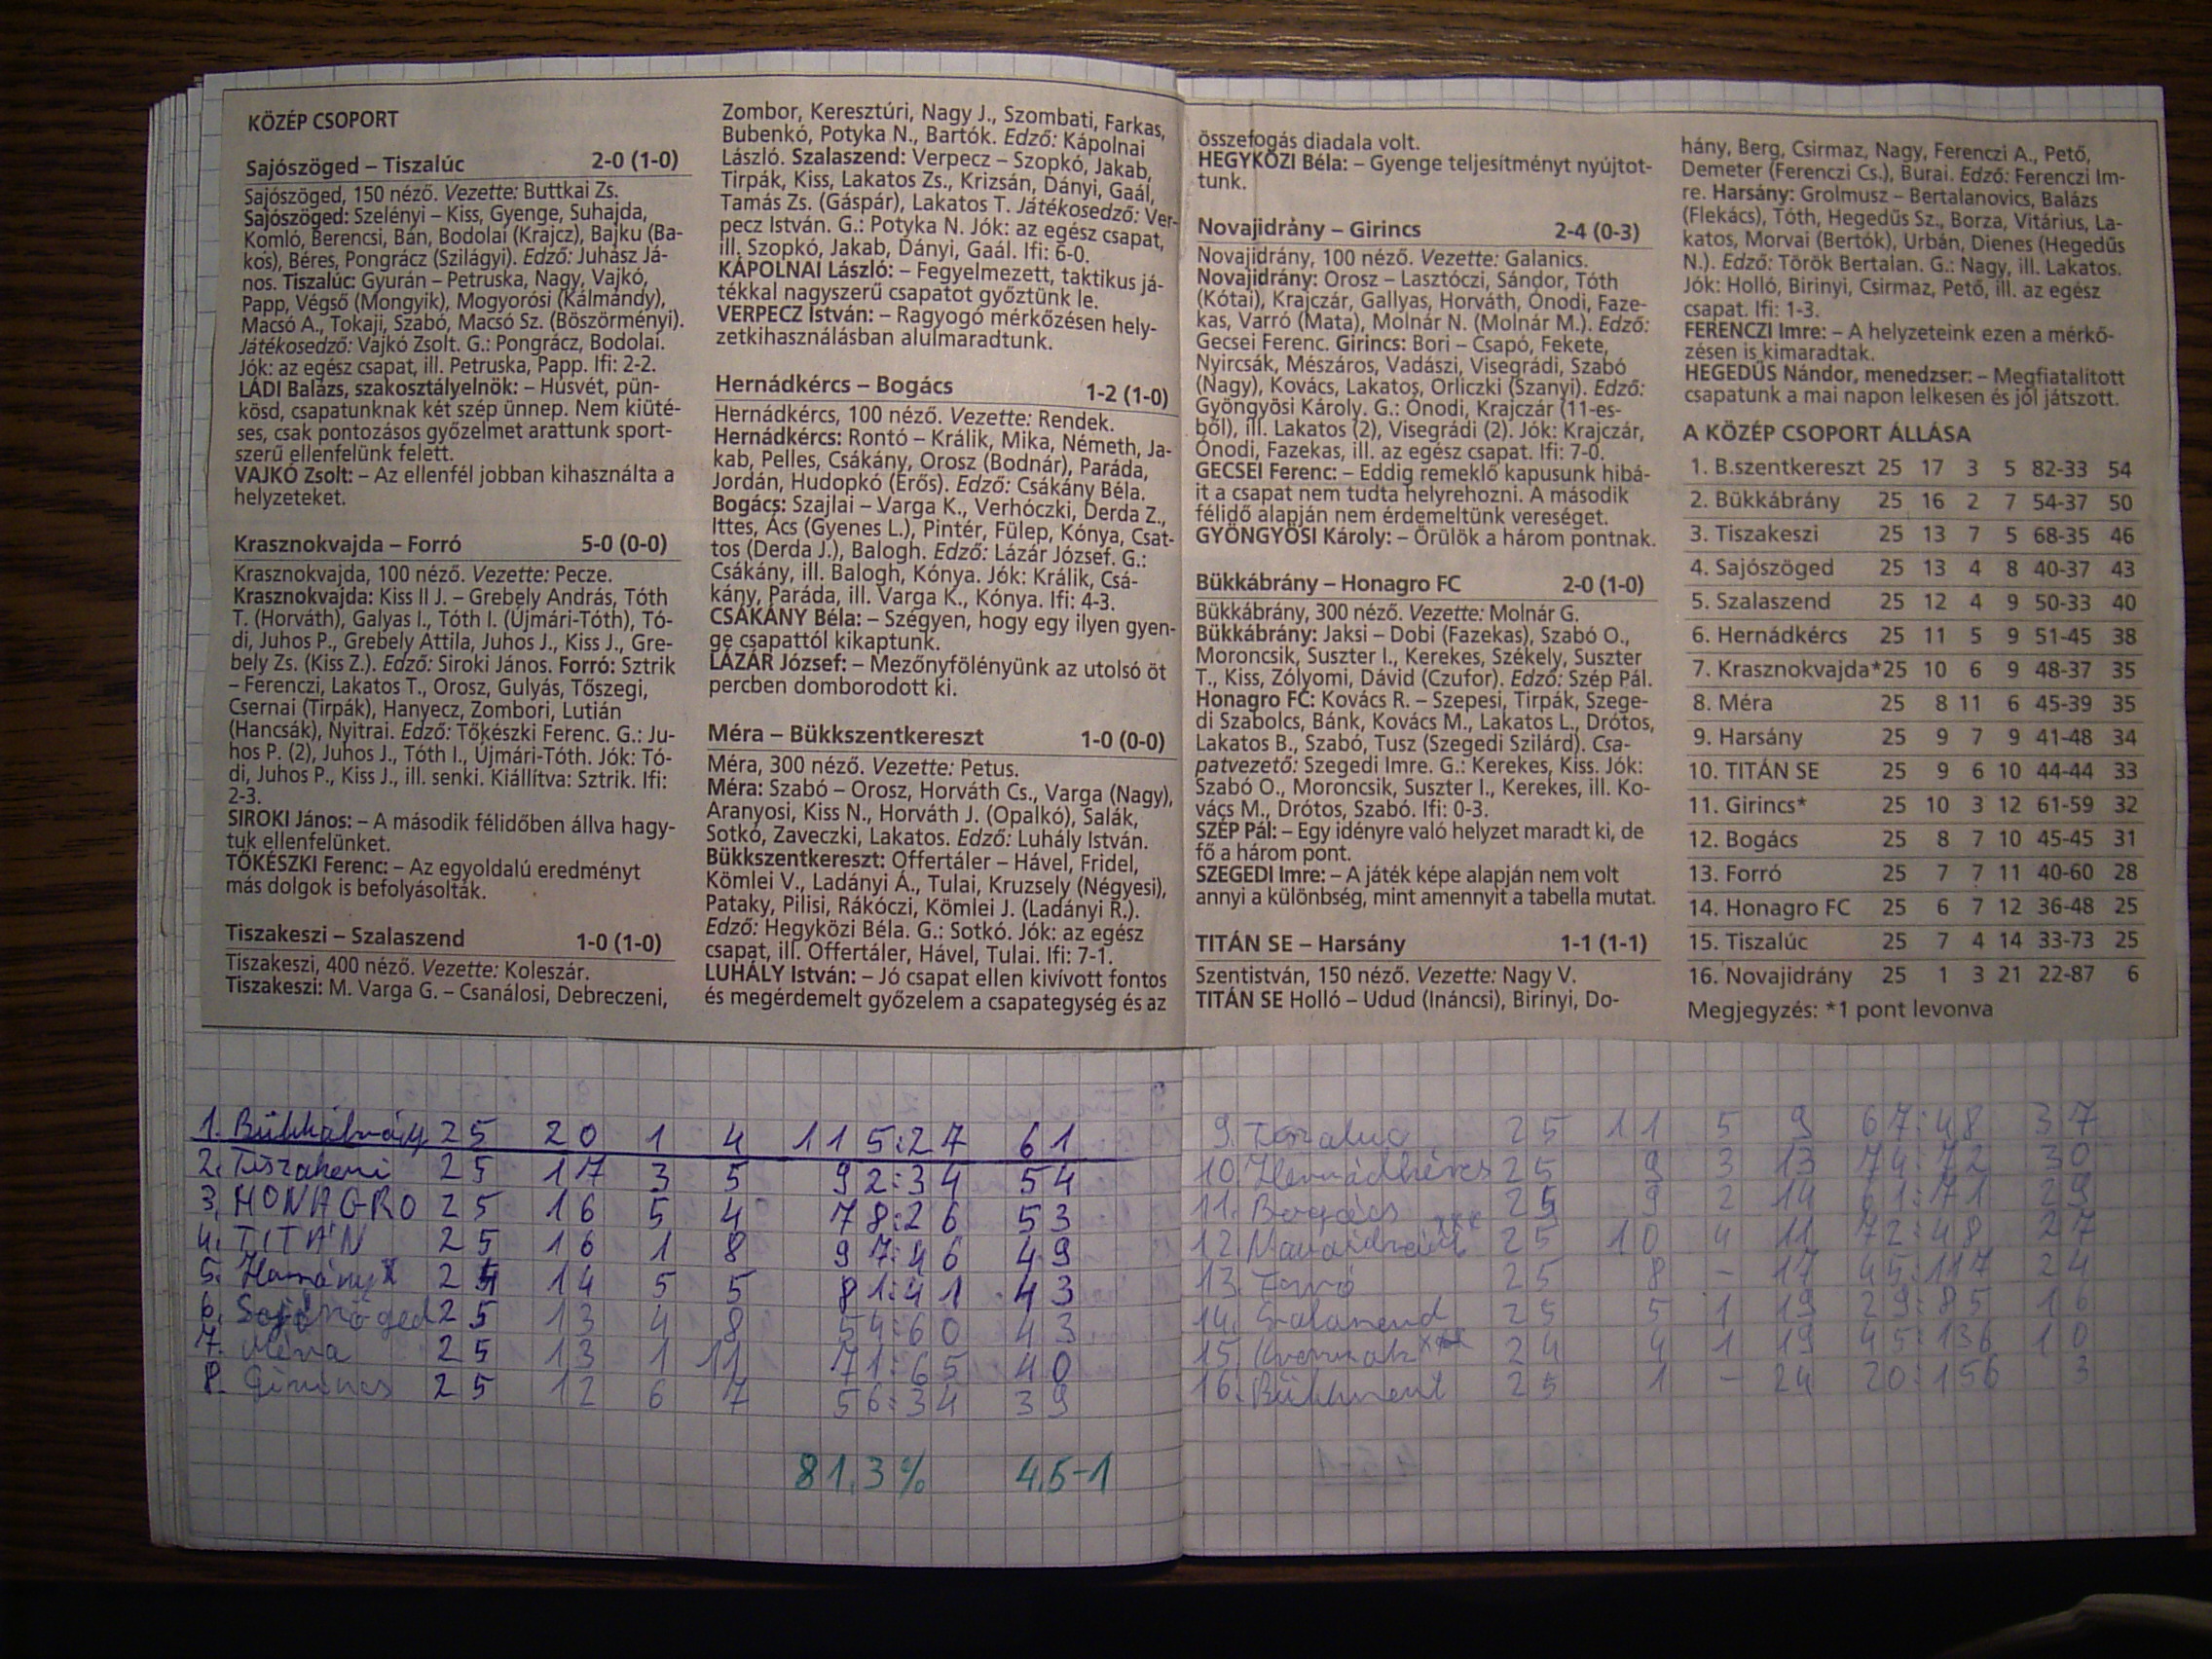 KÖZÉP CSOPORT
Sajószöged – Tiszalúc 2-0 (1-0)
Sajószöged, 150 néző. Vezette: Buttkai Zs.
Sajószöged: Szelényi – Kiss, Gyenge, Suhajda,
Komló, Berencsi, Bán, Bodolai (Krajcz), Bajku (Ba-
kos), Béres, Pongrácz (Szilágyi). Edző: Juhász Já-
nos. Tiszalúc: Gyurán – Petruska, Nagy, Vajkó,
Papp, Végső (Mongyik), Mogyorósi (Kálmándy),
Macsó A., Tokaji, Szabó, Macsó Sz. (Böszörményi).
Játékosedző: Vajkó Zsolt. G.: Pongrácz, Bodolai.
Jók: az egész csapat, ill. Petruska, Papp. Ifi: 2-2.
LÁDI Balázs, szakosztályelnök: – Húsvét, pün-
kösd, csapatunknak két szép ünnep. Nem kiüté-
ses, csak pontozásos győzelmet arattunk sport-
szerű ellenfelünk felett.
VAJKÓ Zsolt: – Az ellenfél jobban kihasználta a
helyzeteket.
Krasznokvajda – Forró 5-0 (0-0)
Krasznokvajda, 100 néző. Vezette: Pecze.
Krasznokvajda: Kiss II J. – Grebely András, Tóth
T. (Horváth), Galyas I., Tóth I. (Újmári-Tóth), Tó-
di, Juhos P., Grebely Attila, Juhos J., Kiss J., Gre-
bely Zs. (Kiss Z.). Edző: Siroki János. Forró: Sztrik
– Ferenczi, Lakatos T., Orosz, Gulyás, Tőszegi,
Csernai (Tirpák), Hanyecz, Zombori, Lutián
(Hancsák), Nyitrai. Edző: Tőkészki Ferenc. G.: Ju-
hos P. (2), Juhos J., Tóth I., Újmári-Tóth. Jók: Tó-
di, Juhos P., Kiss J., ill. senki. Kiállítva: Sztrik. Ifi:
2-3.
SIROKI János: – A második félidőben állva hagy-
tuk ellenfelünket.
TŐKÉSZKI Ferenc: – Az egyoldalú eredményt
más dolgok is befolyásolták.
Tiszakeszi – Szalaszend 1-0 (1-0)
Tiszakeszi, 400 néző. Vezette: Koleszár.
Tiszakeszi: M. Varga G. – Csanálosi, Debreczeni,
Zombor, Keresztúri, Nagy J., Szombati, Farkas,
Bubenkó, Potyka N., Bartók. Edző: Kápolnai
László. Szalaszend: Verpecz – Szopkó, Jakab,
Tirpák, Kiss, Lakatos Zs., Krizsán, Dányi, Gaál,
Tamás Zs. (Gáspár), Lakatos T. Játékosedző: Ver-
pecz István. G.: Potyka N. Jók: az egész csapat,
ill. Szopkó, Jakab, Dányi, Gaál. Ifi: 6-0.
KÁPOLNAI László: – Fegyelmezett, taktikus já-
tékkal nagyszerű csapatot győztünk le.
VERPECZ István: – Ragyogó mérkőzésen hely-
zetkihasználásban alulmaradtunk.
Hernádkércs – Bogács 1-2 (1-0)
Hernádkércs, 100 néző. Vezette: Rendek.
Hernádkércs: Rontó – Králik, Mika, Németh, Ja-
kab, Pelles, Csákány, Orosz (Bodnár), Paráda,
Jordán, Hudopkó (Erős). Edző: Csákány Béla.
Bogács: Szajlai – Varga K., Verhóczki, Derda Z.,
Ittes, Ács (Gyenes L.), Pintér, Fülep, Kónya, Csat-
tos (Derda J.), Balogh. Edző: Lázár József. G.:
Csákány, ill. Balogh, Kónya. Jók: Králik, Csá-
kány, Paráda, ill. Varga K., Kónya. Ifi: 4-3.
CSÁKÁNY Béla: – Szégyen, hogy egy ilyen gyen-
ge csapattól kikaptunk.
LÁZÁR József: – Mezőnyfölényünk az utolsó öt
percben domborodott ki.
Méra – Bükkszentkereszt 1-0 (0-0)
Méra, 300 néző. Vezette: Petus.
Méra: Szabó – Orosz, Horváth Cs., Varga (Nagy),
Aranyosi, Kiss N., Horváth J. (Opalkó), Salák,
Sotkó, Zaveczki, Lakatos. Edző: Luhály István.
Bükkszentkereszt: Offertáler – Hável, Fridel,
Kömlei V., Ladányi Á., Tulai, Kruzsely (Négyesi),
Pataky, Pilisi, Rákóczi, Kömlei J. (Ladányi R.).
Edző: Hegyközi Béla. G.: Sotkó. Jók: az egész
csapat, ill. Offertáler, Hável, Tulai. Ifi: 7-1.
LUHÁLY István: – Jó csapat ellen kivívott fontos
és megérdemelt győzelem a csapategység és az
összefogás diadala volt.
HEGYKÖZI Béla: – Gyenge teljesítményt nyújtot-
tunk.
Novajidrány – Girincs 2-4 (0-3)
Novajidrány, 100 néző. Vezette: Galanics.
Novajidrány: Orosz – Lasztóczi, Sándor, Tóth
(Kótai), Krajczár, Gallyas, Horváth, Ónodi, Faze-
kas, Varró (Mata), Molnár N. (Molnár M.). Edző:
Gecsei Ferenc. Girincs: Bori – Csapó, Fekete,
Nyircsák, Mészáros, Vadászi, Visegrádi, Szabó
(Nagy), Kovács, Lakatos, Orliczki (Szanyi). Edző:
Gyöngyösi Károly. G.: Ónodi, Krajczár (11-es-
ből), ill. Lakatos (2), Visegrádi (2). Jók: Krajczár,
Ónodi, Fazekas, ill. az egész csapat. Ifi: 7-0.
GECSEI Ferenc: – Eddig remeklő kapusunk hibá-
it a csapat nem tudta helyrehozni. A második
félidő alapján nem érdemeltünk vereséget.
GYÖNGYÖSI Károly: – Örülök a három pontnak.
Bükkábrány – Honagro FC 2-0 (1-0)
Bükkábrány, 300 néző. Vezette: Molnár G.
Bükkábrány: Jaksi – Dobi (Fazekas), Szabó O.,
Moroncsik, Suszter I., Kerekes, Székely, Suszter
T., Kiss, Zólyomi, Dávid (Czufor). Edző: Szép Pál.
Honagro FC: Kovács R. – Szepesi, Tirpák, Szege-
di Szabolcs, Bánk, Kovács M., Lakatos L., Drótos,
Lakatos B., Szabó, Tusz (Szegedi Szilárd). Csa-
patvezető: Szegedi Imre. G.: Kerekes, Kiss. Jók:
Szabó O., Moroncsik, Suszter I., Kerekes, ill. Ko-
vács M., Drótos, Szabó. Ifi: 0-3.
SZÉP Pál: – Egy idényre való helyzet maradt ki, de
fő a három pont.
SZEGEDI Imre: – A játék képe alapján nem volt
annyi a különbség, mint amennyit a tabella mutat.
TITÁN SE – Harsány 1-1 (1-1)
Szentistván, 150 néző. Vezette: Nagy V.
TITÁN SE Holló – Udud (Ináncsi), Birinyi, Do-
hány, Berg, Csirmaz, Nagy, Ferenczi A., Pető,
Demeter (Ferenczi Cs.), Burai. Edző: Ferenczi Im-
re. Harsány: Grolmusz – Bertalanovics, Balázs
(Flekács), Tóth, Hegedűs Sz., Borza, Vitárius, La-
katos, Morvai (Bertók), Urbán, Dienes (Hegedűs
N.). Edző: Török Bertalan. G.: Nagy, ill. Lakatos.
Jók: Holló, Birinyi, Csirmaz, Pető, ill. az egész
csapat. Ifi: 1-3.
FERENCZI Imre: – A helyzeteink ezen a mérkő-
zésen is kimaradtak.
HEGEDŰS Nándor, menedzser: – Megfiatalított
csapatunk a mai napon lelkesen és jól játszott.
A KÖZÉP CSOPORT ÁLLÁSA
1. B.szentkereszt 25 17 3 5 82-33 54
2. Bükkábrány 25 16 2 7 54-37 50
3. Tiszakeszi 25 13 7 5 68-35 46
4. Sajószöged 25 13 4 8 40-37 43
5. Szalaszend 25 12 4 9 50-33 40
6. Hernádkércs 25 11 5 9 51-45 38
7. Krasznokvajda*25 10 6 9 48-37 35
8. Méra 25 8 11 6 45-39 35
9. Harsány 25 9 7 9 41-48 34
10. TITÁN SE 25 9 6 10 44-44 33
11. Girincs* 25 10 3 12 61-59 32
12. Bogács 25 8 7 10 45-45 31
13. Forró 25 7 7 11 40-60 28
14. Honagro FC 25 6 7 12 36-48 25
15. Tiszalúc 25 7 4 14 33-73 25
16. Novajidrány 25 1 3 21 22-87 6
Megjegyzés: *1 pont levonva
1. Bükkábrány 25 20 1 4 115:27 61
2. Tiszakeszi 25 17 3 5 92:34 54
3. HONAGRO 25 16 5 4 78:26 53
4. TITÁN 25 16 1 8 97:46 49
5. Harsány 24 14 5 5 81:41 43
6. Sajószöged 25 13 4 8 54:60 43
7. Méra 25 13 1 11 71:65 40
8. Girincs 25 12 6 7 56:34 39
81,3% 4,5-1
9. Tiszaluc 25 11 5 9 67:48 37
10. Hernádkércs 25 9 3 13 74:72 30
11. Bogács 25 9 2 14 61:71 29
12. Novajidrány 25 10 4 11 72:48 27
13. Forró 25 8 – 17 45:117 24
14. Szalaszend 25 5 1 19 29:85 16
15. 24 4 1 19 45:136 10
16. Bükkszent 25 1 – 24 20:156 3